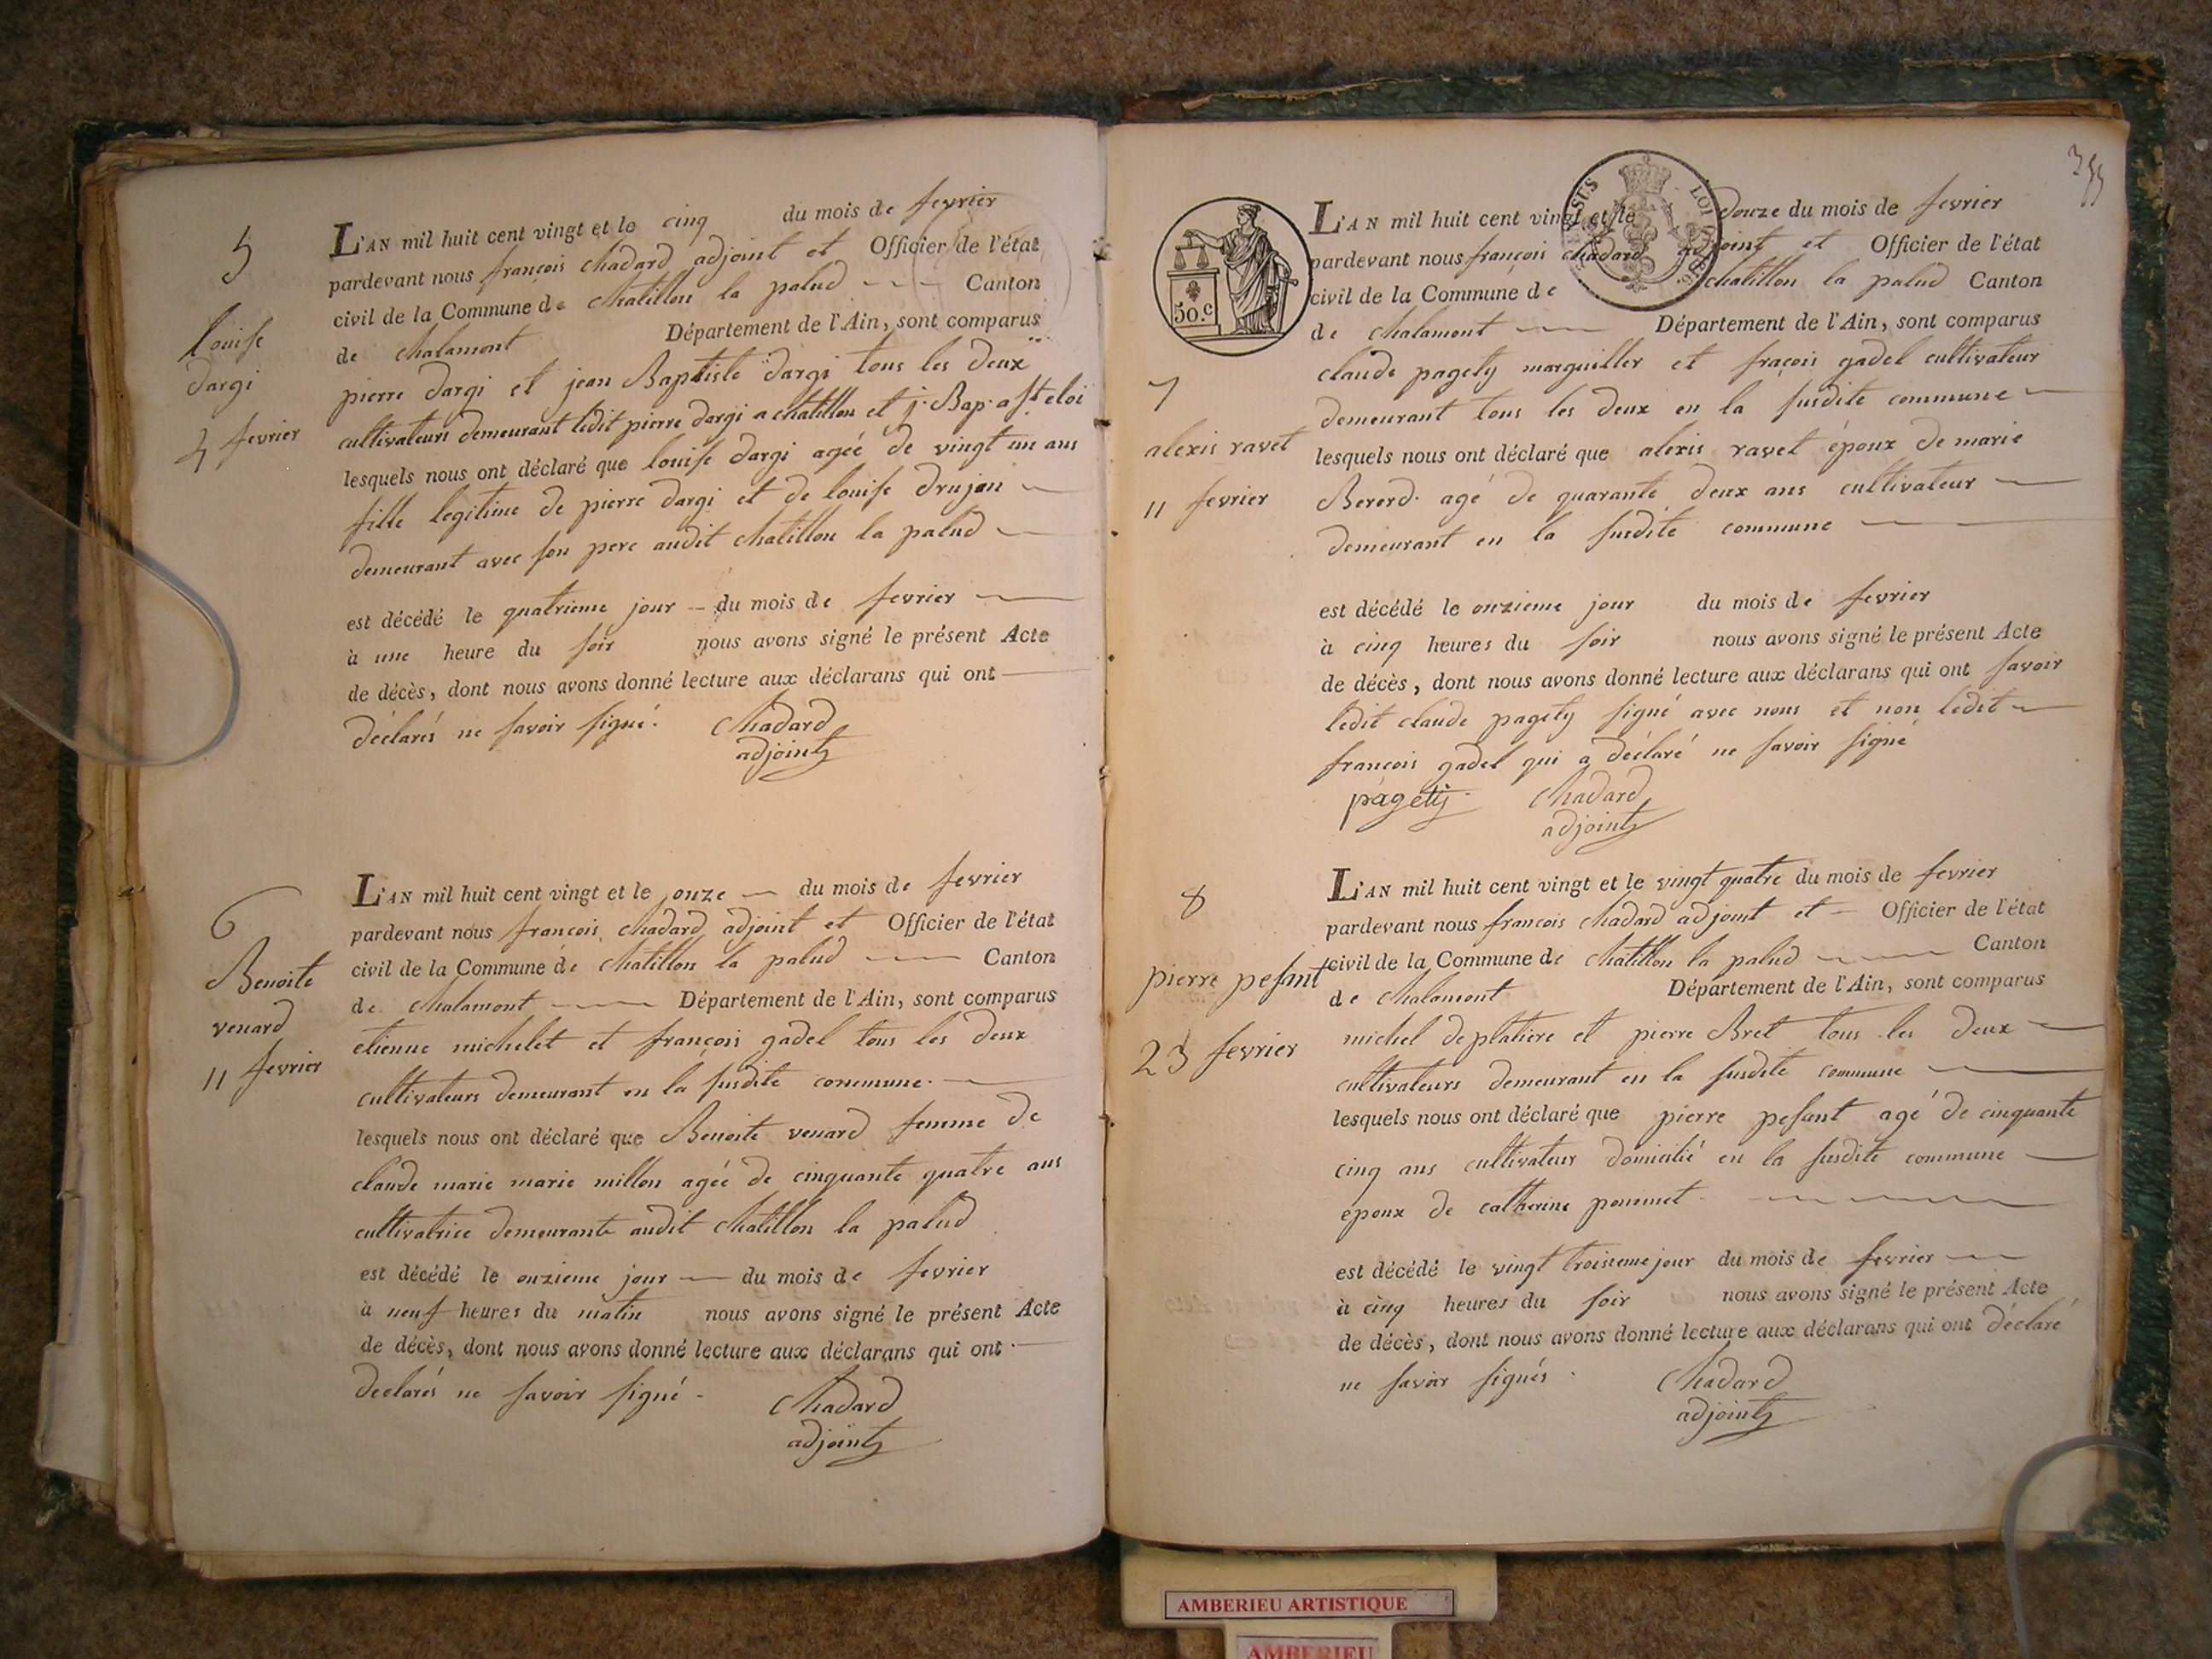 5
Louise
dargi
4 fevrier
L'AN mil huit cent vingt et le cinq du mois de fevrier
pardevant nous françois Chadard adjoint et Officier de l'état
civil de la Commune de Chatillon la palud Canton
de Chalamont Département de l'Ain, sont comparus
pierre dargi et jean Baptiste dargi tous les deux
cultivateurs demeurant ledit pierre dargi a chatillon et j. Bap. a St eloi
lesquels nous ont déclaré que louise dargi agéé de vingt un ans
fille legitime de pierre dargi et de louise drujon
demeurant avec son pere audit chatillon la palud
est décédé le quatrieme jour du mois de fevrier
à une heure du soir nous avons signé le présent Acte
de décès, dont nous avons donné lecture aux déclarans qui ont
déclarés ne savoir signé. Chadard
adjoint
6
Benoite
venard
11 fevrier
L'AN mil huit cent vingt et le onze du mois de fevrier
pardevant nous françois Chadard adjoint et Officier de l'état
civil de la Commune de Chatillon la palud Canton
de Chalamont Département de l'Ain, sont comparus
etienne michelet et françois gadel tous les deux
cultivateurs demeurant en la susdite commune.
lesquels nous ont déclaré que Benoite venard femme de
claude marie marie millon agéé de cinquante quatre ans
cultivatrice demeurante audit chatillon la palud
est décédé le onzieme jour du mois de fevrier
à neuf heures du matin nous avons signé le présent Acte
de décès, dont nous avons donné lecture aux déclarans qui ont
declarés ne savoir signé - Chadard
adjoint
50.c
LOI
L'AN mil huit cent vingt et le douze du mois de fevrier
pardevant nous françois Chadard adjoint et Officier de l'état
civil de la Commune de chatillon la palud Canton
de Chalamont Département de l'Ain, sont comparus
claude pagety marguiller et fraçois gadel cultivateur
demeurant tous les deux en la susdite commune
7
alexis ravet
11 fevrier
lesquels nous ont déclaré que alexis ravet époux de marie
Bererd. agé de quarante deux ans cultivateur
demeurant en la susdite commune
est décédé le onzieme jour du mois de fevrier
à cinq heures du soir nous avons signé le présent Acte
de décès, dont nous avons donné lecture aux déclarans qui ont savoir
ledit claude pagety signé avec nous et non ledit
françois gadel qui a déclaré ne savoir signé
pagety. Chadard
adjoint
8
pierre pesant
23 fevrier
L'AN mil huit cent vingt et le vingt quatre du mois de fevrier
pardevant nous francois Chadard adjoint et Officier de l'état
civil de la Commune de Chatillon la palud Canton
de Chalamont Département de l'Ain, sont comparus
michel deplatiere et pierre Bret tous les deux
cultivateurs demeurant en la susdite commune
lesquels nous ont déclaré que pierre pesant agé de cinquante
cinq ans cultivateur domicilié en la susdite commune
epoux de catherine pommet
est décédé le vingt troisieme jour du mois de fevrier
à cinq heures du soir nous avons signé le présent Acte
de décès, dont nous avons donné lecture aux déclarans qui ont déclaré
ne savoir signés. Chadard
adjoint
AMBERIEU ARTISTIQUE
AMBERIEU